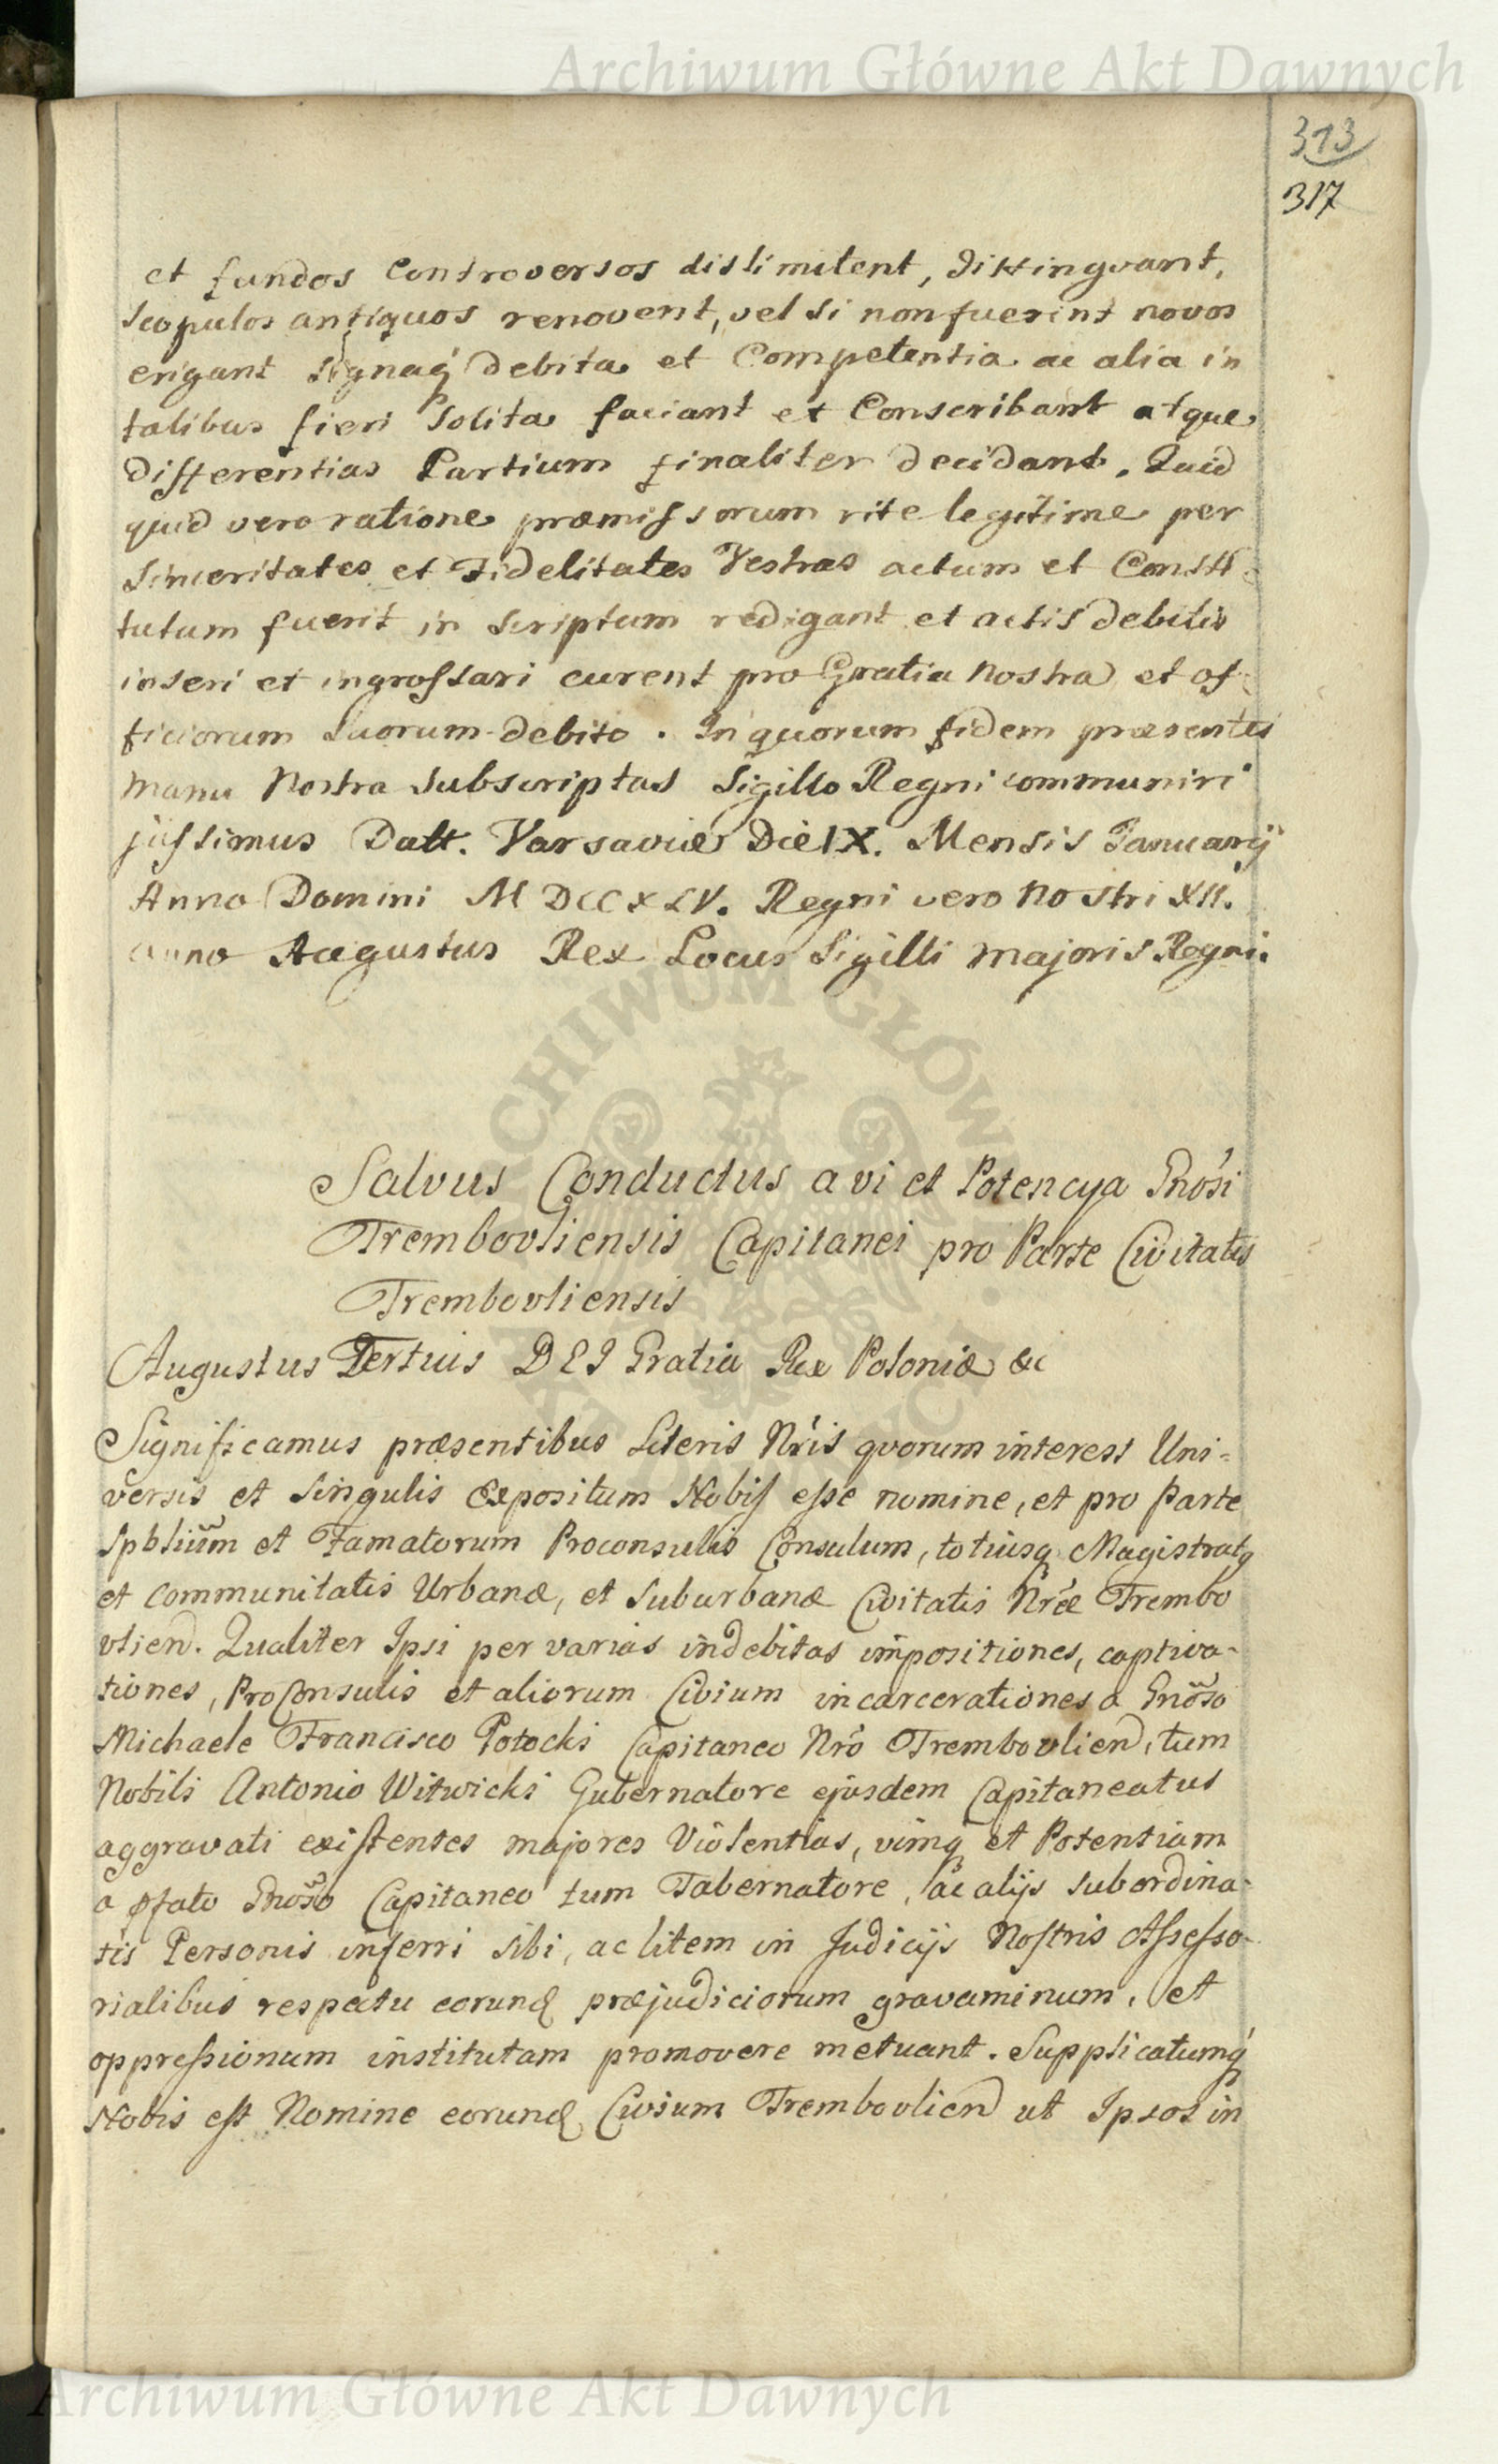 Archiwum Główne Akt Dawnych
313
317
et fundos Controversos dislimitent, distingvant,
Scopulos antiquos renovent, vel si non fuerint novos
erigant Signaq́ debita et Competentia ac alia in
talibus fieri Solita faciant et Conscribant atque
differentias Partium finaliter decidant. Quid
quid vero ratione præmissorum rite legitime per
Sinceritates et Fidelitates Vestras actum et Consti:
tutum fuerit in Scriptum redigant et actis debitis
inseri et ingrossari curent pro Gratia Nostra et of:
ficiorum Suorum debito. In quorum fidem præsentes
Manu Nostra Subscriptas Sigillo Regni communiri
jussimus Datt. Varsaviæ Die IX. Mensis Januarij
Anno Domini M DCCXLV. Regni vero Nostri XII.
anno Augustus Rex Locus Sigilli majoris Regni.
Salvus Conductus a vi et Potencya Gnosi
Trembovliensis Capitanei pro Parte Civitatis
Trembovliensis
Augustus Tertius DEI Gratia Rex Poloniæ &c
Significamus præsentibus Literis Nris qvorum interest Uni=
versis et Singulis Expositum Nobis esse nomine, et pro Parte
Spbliūm et Famatorum Proconsulis Consulum, totiusq Magistratq
et Communitatis Urbanæ, et Suburbanæ Civitatis Nræ Trembo
vlien. Qualiter Ipsi per varias indebitas impositiones, captiva-
tiones, ProConsulis et aliorum Civium incarcerationes a Gnoso
Michaele Francisco Potocki Capitaneo Nro Trembovlien, tum
Nobili Antonio Witwicki Gubernatore ejusdem Capitaneatus
aggravati existentes majores Violentias, vimq et Potentiam
a pfato Gnoso Capitaneo tum Tabernatore, ac alijs subordina-
tis Personis inferri sibi, ac litem in Judicijs Nostris Assesso-
rialibus respectu eorund præjudiciorum gravaminum, et
oppressionum institutam promovere metuant. Supplicatumq́
Nobis est Nomine eorund Civium Trembovlien ut Ipsos in
Archiwum Główne Akt Dawnych